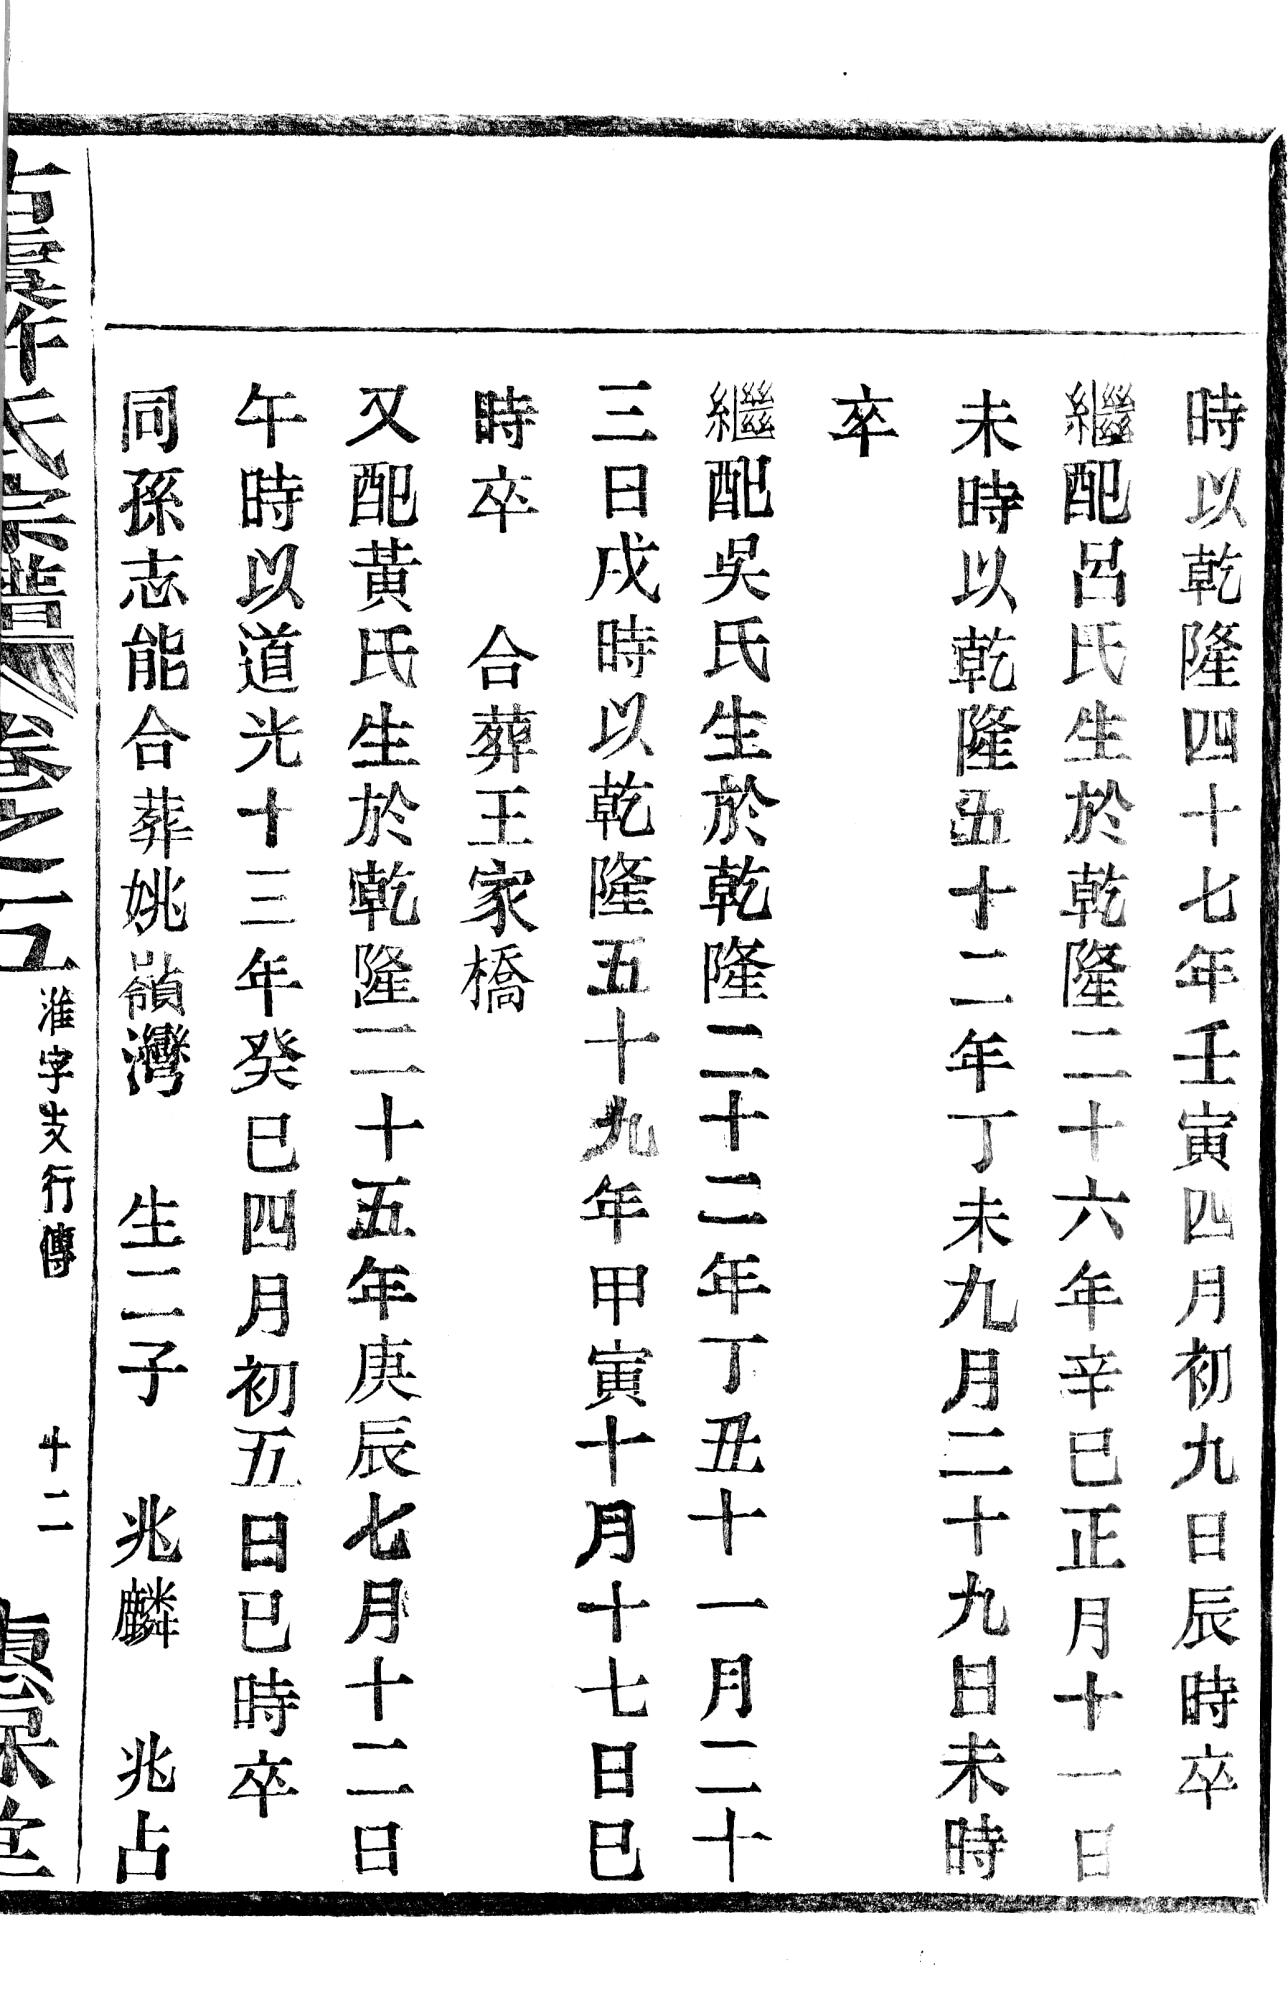 時以乾隆四十七年壬寅四月初九日辰時卒
繼配呂氏生於乾隆二十六年辛巳正月十一日
未時以乾隆五十二年丁未九月二十九日未時
卒
繼配吳氏生於乾隆二十二年丁丑十一月二十
三日戌時以乾隆五十九年甲寅十月十七日巳
時卒　合葬王家橋
又配黃氏生於乾隆二十五年庚辰七月十二日
午時以道光十三年癸巳四月初五日巳時卒
同孫志能合葬姚嶺灣　生二子　兆麟　兆占
氏宗譜　卷之二　淮字支行傳　十二　堂